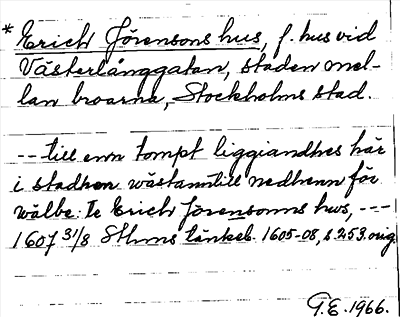 * Erich Jörensons hus, f. hus vid
Västerlånggatan, staden mel-
lan broarna, Stockholms stad.
--- till enn tompt liggiandhes här
i stadhen wästanntill nedhenn för
wälbe: te Erich Jörensonns hws, ---
1607 31/8 Sthms tänkeb. 1605-08, s. 253. orig.
G.E. 1966.